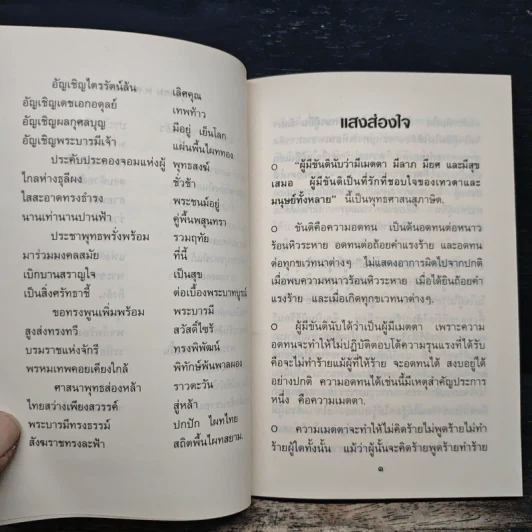 อัญเชิญไตรรัตน์ล้น เลิศคุณ
อัญเชิญเดชเอกอดุลย์ เทพท้าว
อัญเชิญผลกุศลบุญ มีอยู่ เย็นโลก
อัญเชิญพระบารมีเจ้า แผ่นพื้นไผททอง
ประคับประคองจอมแห่งผู้ พุทธสงฆ์
ไกลห่างธุลีผง ชั่วช้า
ใสสะอาดทรงธำรง พระชนม์อยู่
นานเท่านานปานฟ้า คู่พื้นพสุนทรา
ประชาพุทธพรั่งพร้อม รวมฤทัย
มาร่วมมงคลสมัย ที่นี้
เบิกบานสราญใจ เป็นสุข
เป็นสิ่งศรัทธาชี้ ต่อเบื้องพระบาทบูรณ์
ขอทรงพูนเพิ่มพร้อม พระบารมี
สูงส่งทรงทวี สวัสดิ์ไซร้
บรมราชแห่งจักรี ทรงพิพัฒน์
พรหมเทพคอยเคียงใกล้ พิทักษ์พ้นพาลผอง
ศาสนาพุทธส่องหล้า ราวตะวัน
ไทยสว่างเพียงสวรรค์ สู่หล้า
พระบารมีทรงธรรม์ ปกปัก ไผทไทย
สังฆราชทรงละฟ้า สถิตพื้นไผทสยาม.
แสงส่องใจ
๐ "ผู้มีขันตินับว่ามีเมตตา มีลาภ มียศ และมีสุข
เสมอ ผู้มีขันติเป็นที่รักที่ชอบใจของเทวดาและ
มนุษย์ทั้งหลาย" นี้เป็นพุทธศาสนสุภาษิต.
๐ ขันติคือความอดทน เป็นต้นอดทนต่อหนาว
ร้อนหิวระหาย อดทนต่อถ้อยคำแรงร้าย และอดทน
ต่อทุกขเวทนาต่างๆ ไม่แสดงอาการผิดไปจากปกติ
เมื่อพบความหนาวร้อนหิวระหาย เมื่อได้ยินถ้อยคำ
แรงร้าย และเมื่อเกิดทุกขเวทนาต่างๆ.
๐ ผู้มีขันตินับได้ว่าเป็นผู้มีเมตตา เพราะความ
อดทนจะทำให้ไม่ปฏิบัติตอบโต้ความรุนแรงที่ได้รับ
คือจะไม่ทำร้ายแม้ผู้ที่ให้ร้าย จะอดทนได้ สงบอยู่ได้
อย่างปกติ ความอดทนได้เช่นนี้มีเหตุสำคัญประการ
หนึ่ง คือความเมตตา.
๐ ความเมตตาจะทำให้ไม่คิดร้ายไม่พูดร้ายไม่ทำ
ร้ายผู้ใดทั้งนั้น แม้ว่าผู้นั้นจะคิดร้ายพูดร้ายทำร้าย
๑